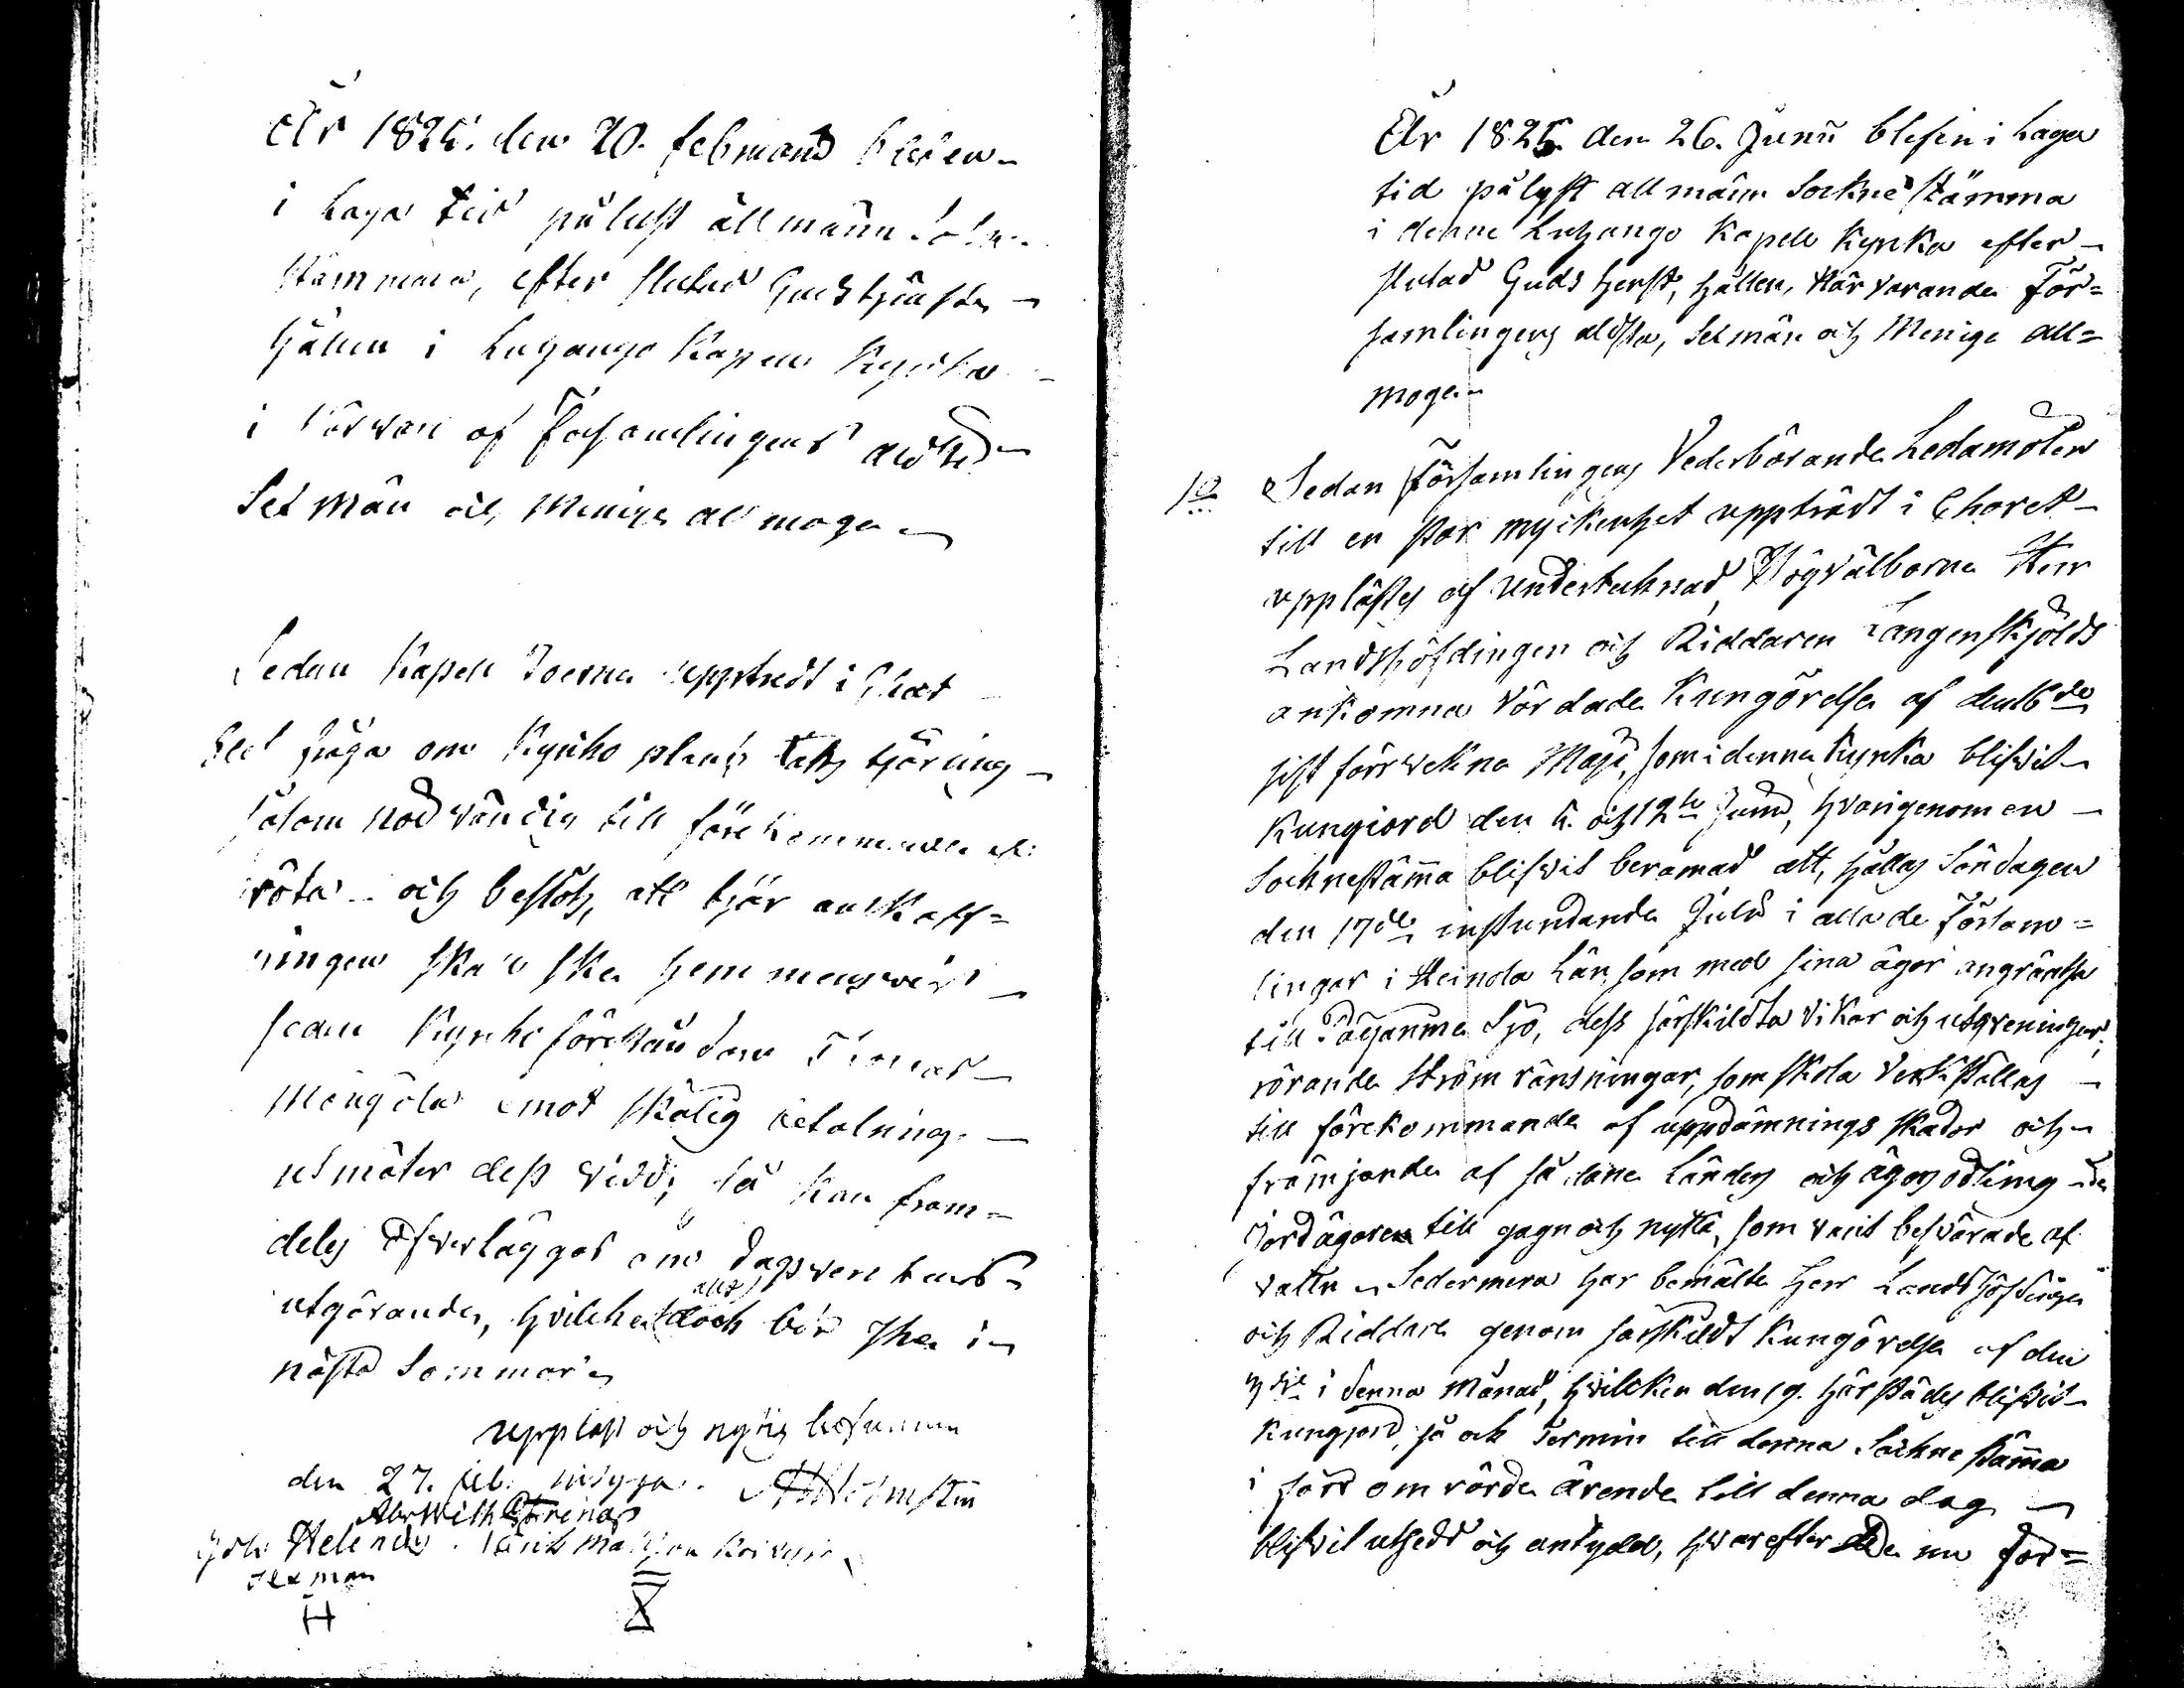 År 1825. den 20. februarii blef en
i Laga tid pålyst allmänn Sokn-
stämma, efter slutad Gudstjensten
hållen i Luhango Kapell Kyrka
i närvaro af Församlingens äldste
Sexmän och Menige allmogen
Sedan Kapell Boerna uppträdt i Choret
blef fråga om Kyrko plank taks tjäring
såsom nödvändig till förekommande af
röta och beslöts, att tjär anskaff=
ningen skall ske hemmansvis
sedan Kyrko föreståndaren Thomas
Mengölä emot skälig betalning
utmäter dess vidd; så kan fram=
deles öfverläggas om dagsverkens
utgörande, hvilcket allt dock bör ske i
nästa Sommar
uppläst och rygtig befunnen
den 27. feb.
Abr Wilh Strenas
Johan Helenius Erik Mattsson
sexman
H
År 1825 den 26. Junii blef en i Laga
tid pålyst allmänn Sockne stämma
i denne Luhango Kapell Kyrka efter
slutad Gudstjenst, hållen, närvarande För=
samlingens äldsta, Sexmän och Menige all=
mogen
1o Sedan Församlingens Vederbörande Ledamöten
till en stor myckenhet uppträdt i Choret
upplästes af undertecknad Högvälborne Herr
Landshöfdingen och Riddaren Langenskjölds
ankomna vördade Kungörelse af den 16de
sist förvekne Maji, som i denna Kyrka blifvit
Kungiord den 5. och 12te Junii, hvarigenom en
Socknestämma blifvit beramad att, hållas Söndagen
den 17de instundande Julii i alla de Försam=
lingar i Heinola Län, som med sina ägor angränsa
till Päijänne Sjö, dess särskildta vikar och utgreningar,
rörande ström rensningar, som skola verkställas
till förekommande af uppdämnings skador och
främjande af sådane Länders och ägors odling
Jordägaren till gagn och nytta, som varit besvärade af
vattn Sedermera har bemälte Herr Landshöfdingen
och Riddare genom särskildt Kungörelse af den
i denna Månad, hvilcken den 19. härstädes blifvit
kungjord, så och Termin till denna Sockne stämma
i förr omrörde ärende till denna dag
blifvit utsedd och antydd, hvarefter de nu för=